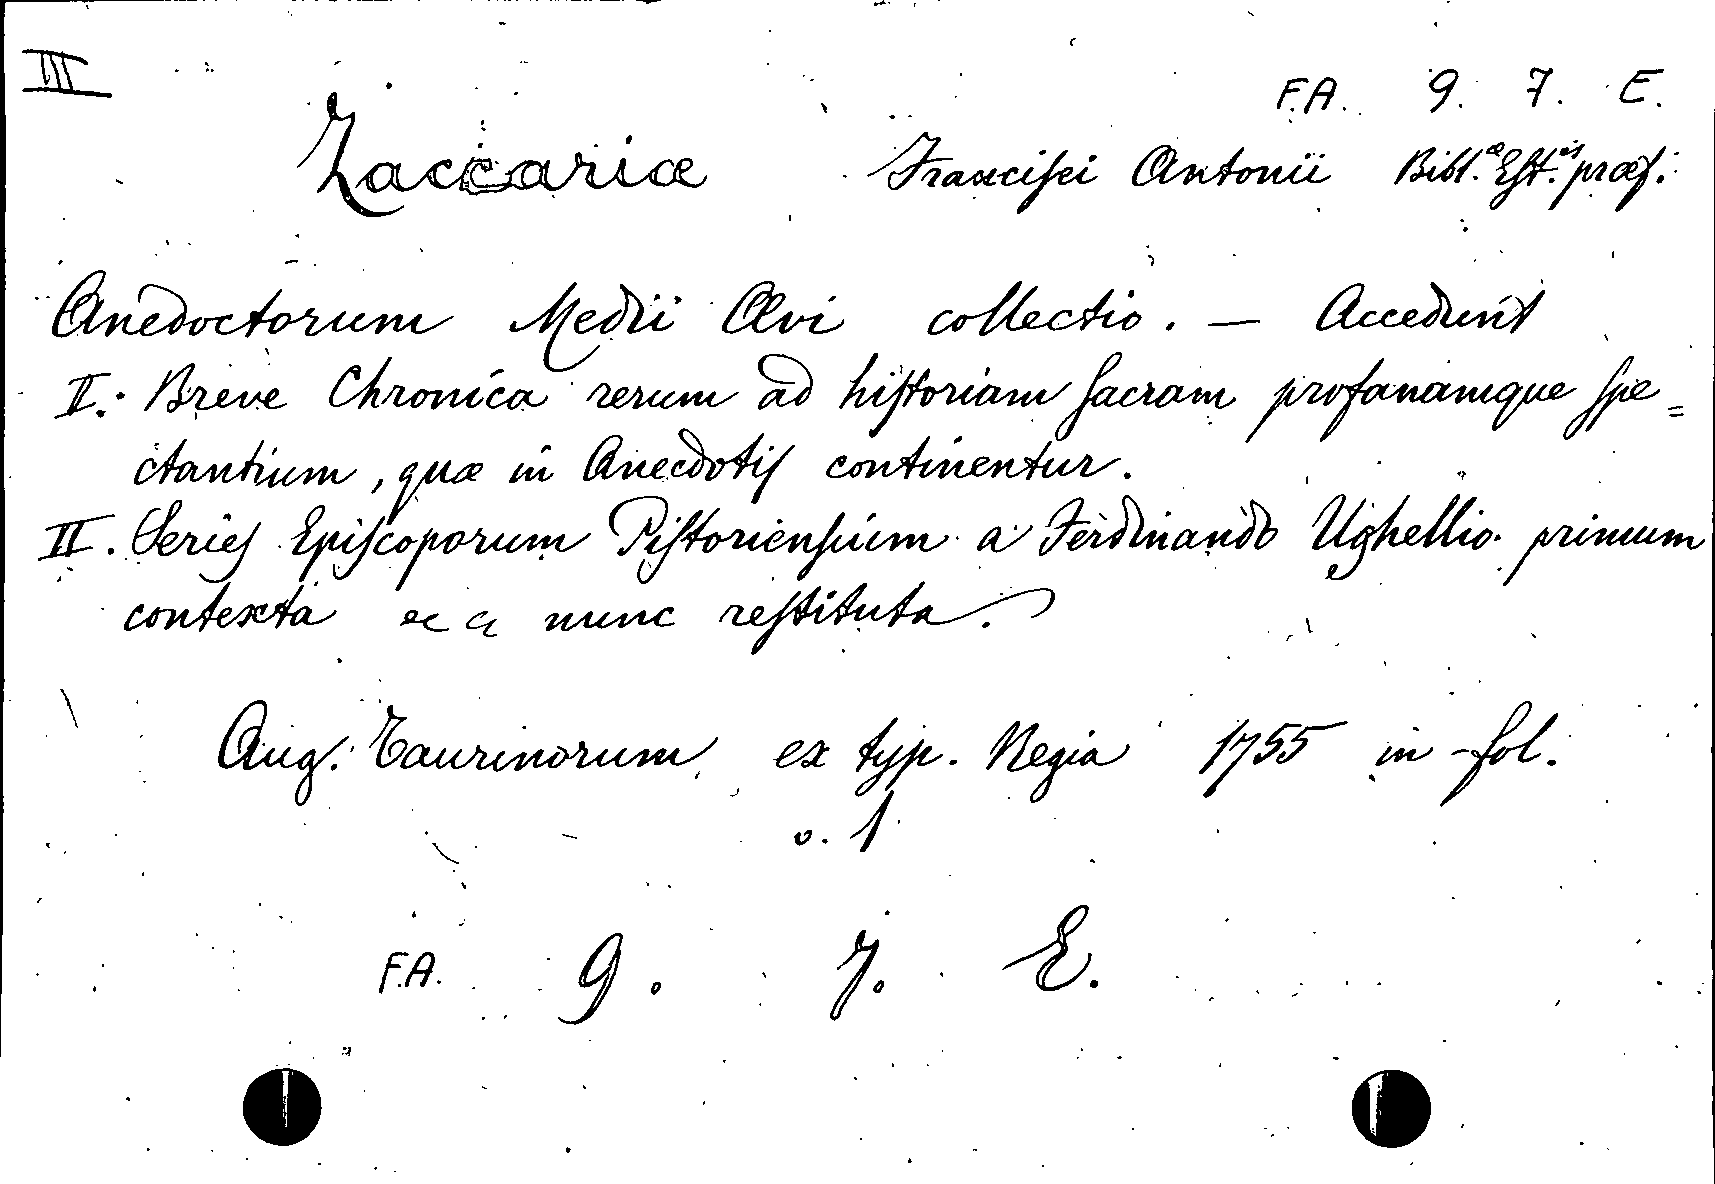 III
F.A. 9. 7. E.
Zaccariæ Francisci Antonii Bibl.æ Eſt.is præf.
Anedoctorum Medii Ævi collectio. — Accedunt
II. Breve Chronica rerum ad hiſtoriam ſacram profanamque ſpe=
ctantium, quæ in Anecdotiſ continentur.
II. Serieſ Epiſcoporum Piſtorienſium a Ferdinando Ughellio primum
contexta nunc reſtituta.
Aug. Taurinorum ex typ. Regia 1755 in fol.
v. 1
F.A. 9. 7. E.